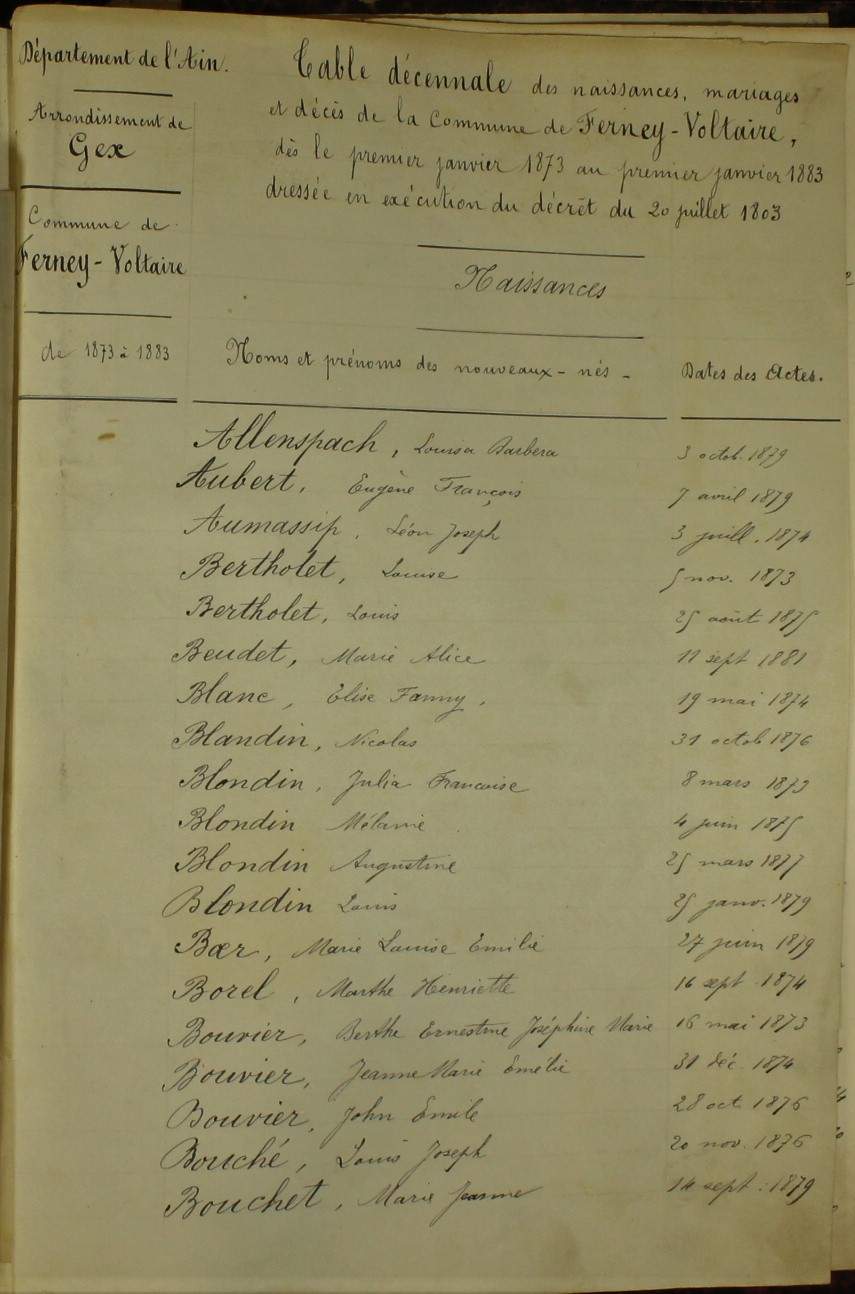 Département de l'Ain.
Arrondissement de
Gex
Commune de
Ferney-Voltaire
de 1873 à 1883
Table décennale des naissances, mariages
et décès de la Commune de Ferney-Voltaire,
dès le premier janvier 1873 au premier janvier 1883
dressée en exécution du décrêt du 20 juillet 1803
Naissances
Noms et prénoms des nouveaux-nés - Dates des Actes.
Allenspach, Louisa Barbera 3 octob. 1879
Aubert, Eugène François 7 avril 1879
Aumassip, Léon Joseph 3 juill. 1874
Bertholet, Louise 5 nov. 1873
Bertholet, Louis 25 août 1875
Beudet, Marie Alice 11 sept 1881
Blanc, Elise Fanny, 19 mai 1874
Blandin, Nicolas 31 octob 1876
Blondin, Julia Francoise 8 mars 1873
Blondin Mélanie 4 juin 1875
Blondin Augustine 25 mars 1877
Blondin Louis 25 janv. 1879
Bær, Marie Louise Emilie 27 juin 1879
Borel, Marthe Henriette 16 sept 1874
Bouvier, Berthe Ernestine Joséphine Marie 16 mai 1873
Bouvier, Jeanne Marie Emélie 31 déc. 1874
Bouvier, John Emile 28 oct 1876
Bouché, Louis Joseph 20 nov. 1876
Bouchet, Marie Jeanne 14 sept. 1879